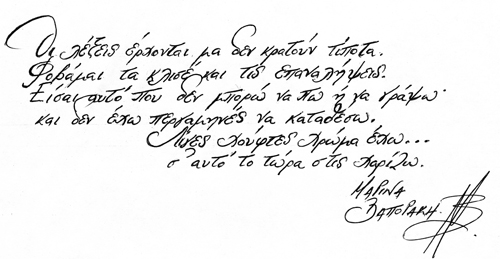 Οι λέξεις έρχονται μα δεν κρατούν τίποτα.
Φοβάμαι τα κλισέ και τις επαναλήψεις.
Είσαι αυτό που δεν μπορώ να πω ή να γράψω
και δεν έχω περγαμηνές να καταθέσω.
Λίγες χούφτες χρώμα έχω...
σ' αυτό το τώρα στις χαρίζω.
ΜΑΡΙΝΑ
ΖΑΠΟΡΑΚΗ